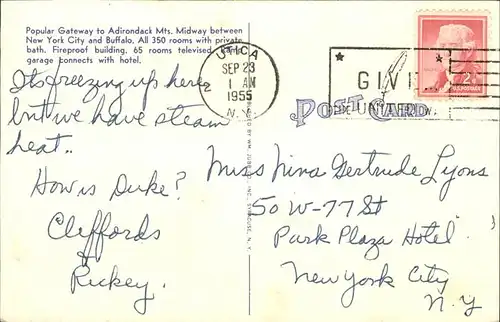 Popular Gateway to Adirondack Mts. Midway between
New York City and Buffalo. All 350 rooms with private
bath. Fireproof building. 65 rooms televised.
garage connects with hotel.
UTICA
SEP 23
1 AM
1955
N.Y.
GIVE
THE UNITED WAY
2¢
POST CARD
Its freezing up here
but we have steam
heat..
How is Duke?
Cliffords
&
Rickey.
Miss Nina Gertrude Lyons
50 W-77 St
Park Plaza Hotel
New York City
N.Y